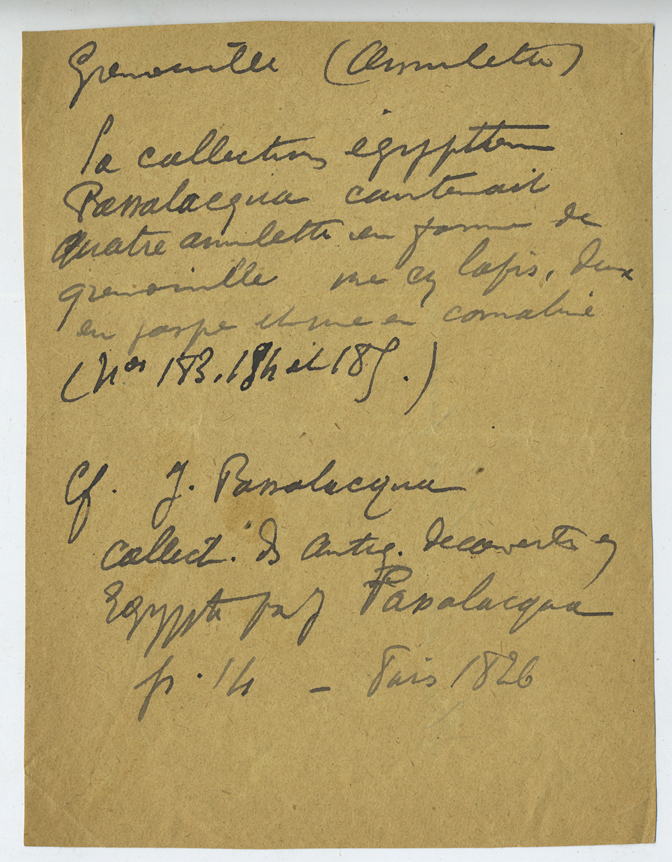 Grenouille (Amulette)
La collection égyptienne
Passalacqua contenait
quatre amulette en forme de
grenouille une en lapis, deux
en jaspe et une en cornaline
(Nos 183, 184 et 185.)
Cf. J. Passalacqua
collect. ds Antiq. decouverts en
Egypte par J Passalacqua
p. 14 — Paris 1826